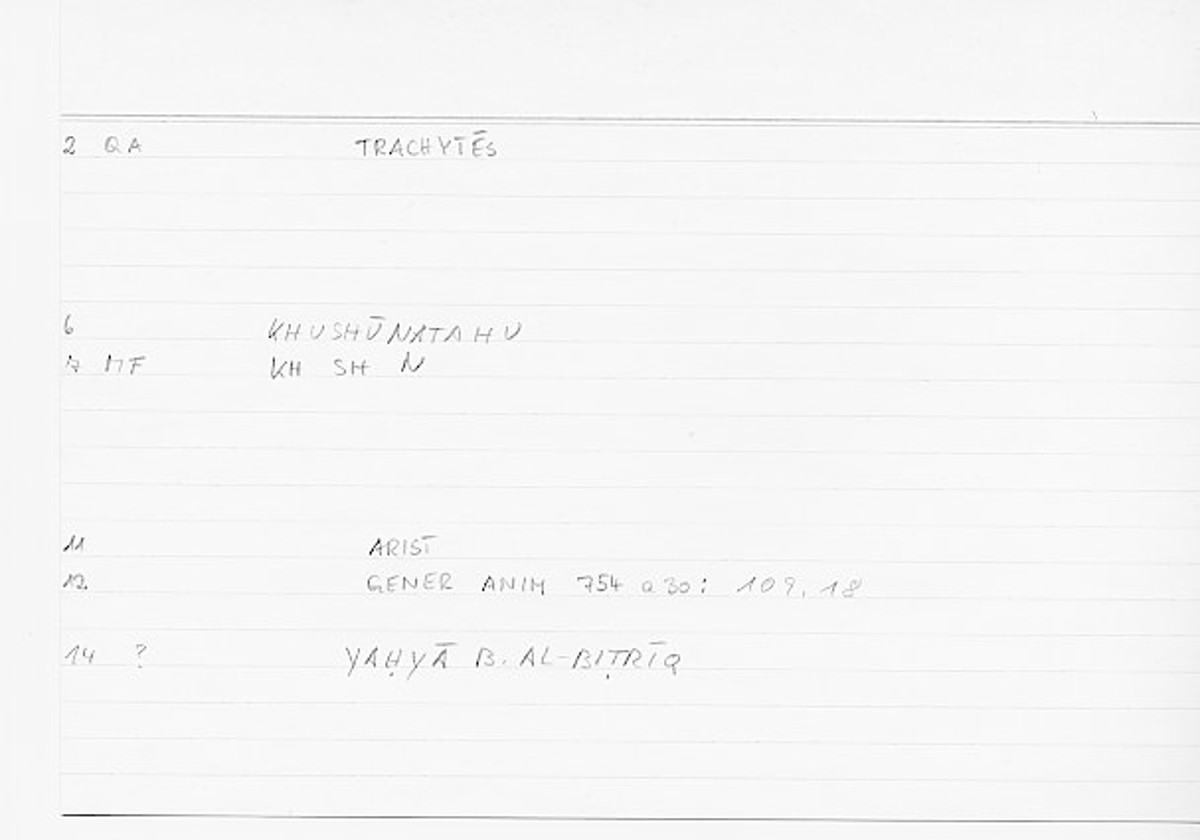 2 QA TRACHYTĒS
6 KHUSHŪNATAHU
7 MF KH SH N
11 ARIST
12 GENER ANIM 754 a 30: 109, 18
14 ? YAḤYĀ B. AL-BIṬRĪQ